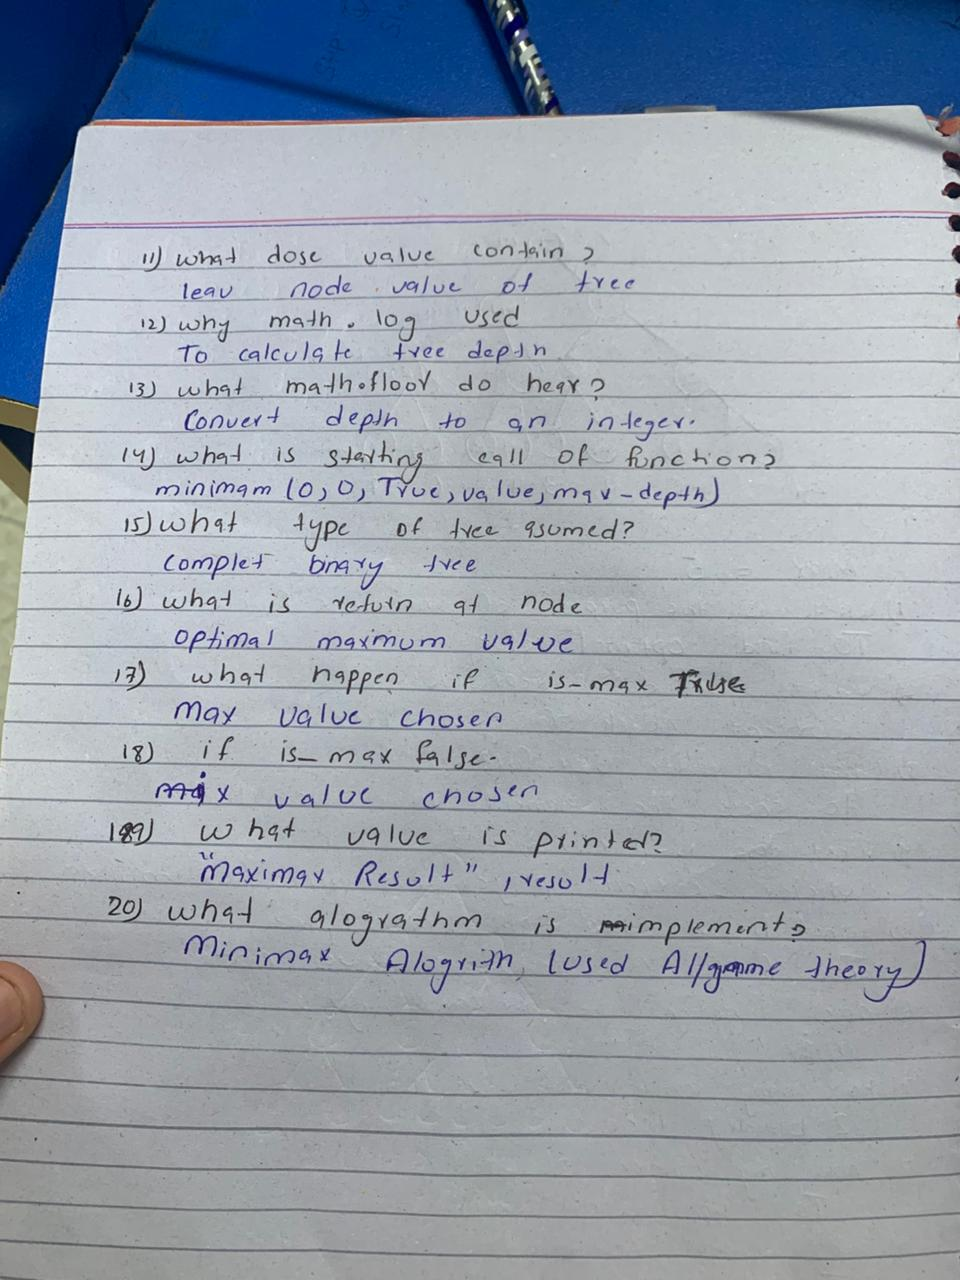 11) what dose value contain ?
leav node value of tree
12) why math. log used
To calculate tree depth
13) what math.floor do hear?
Convert depth to an integer.
14) what is starting call of function?
minimam (0, 0, True, value, max-depth)
15) what type of tree asumed?
complet binary tree
16) what is return at node
optimal maxmum value
17) what happen if is-max True
max value chosen
18) if is_max false.
value chosen
19) what value is printed?
"Maximax Result", result
20) what alograthm is implement?
Minimax Alogrith, (used AI/game theory)